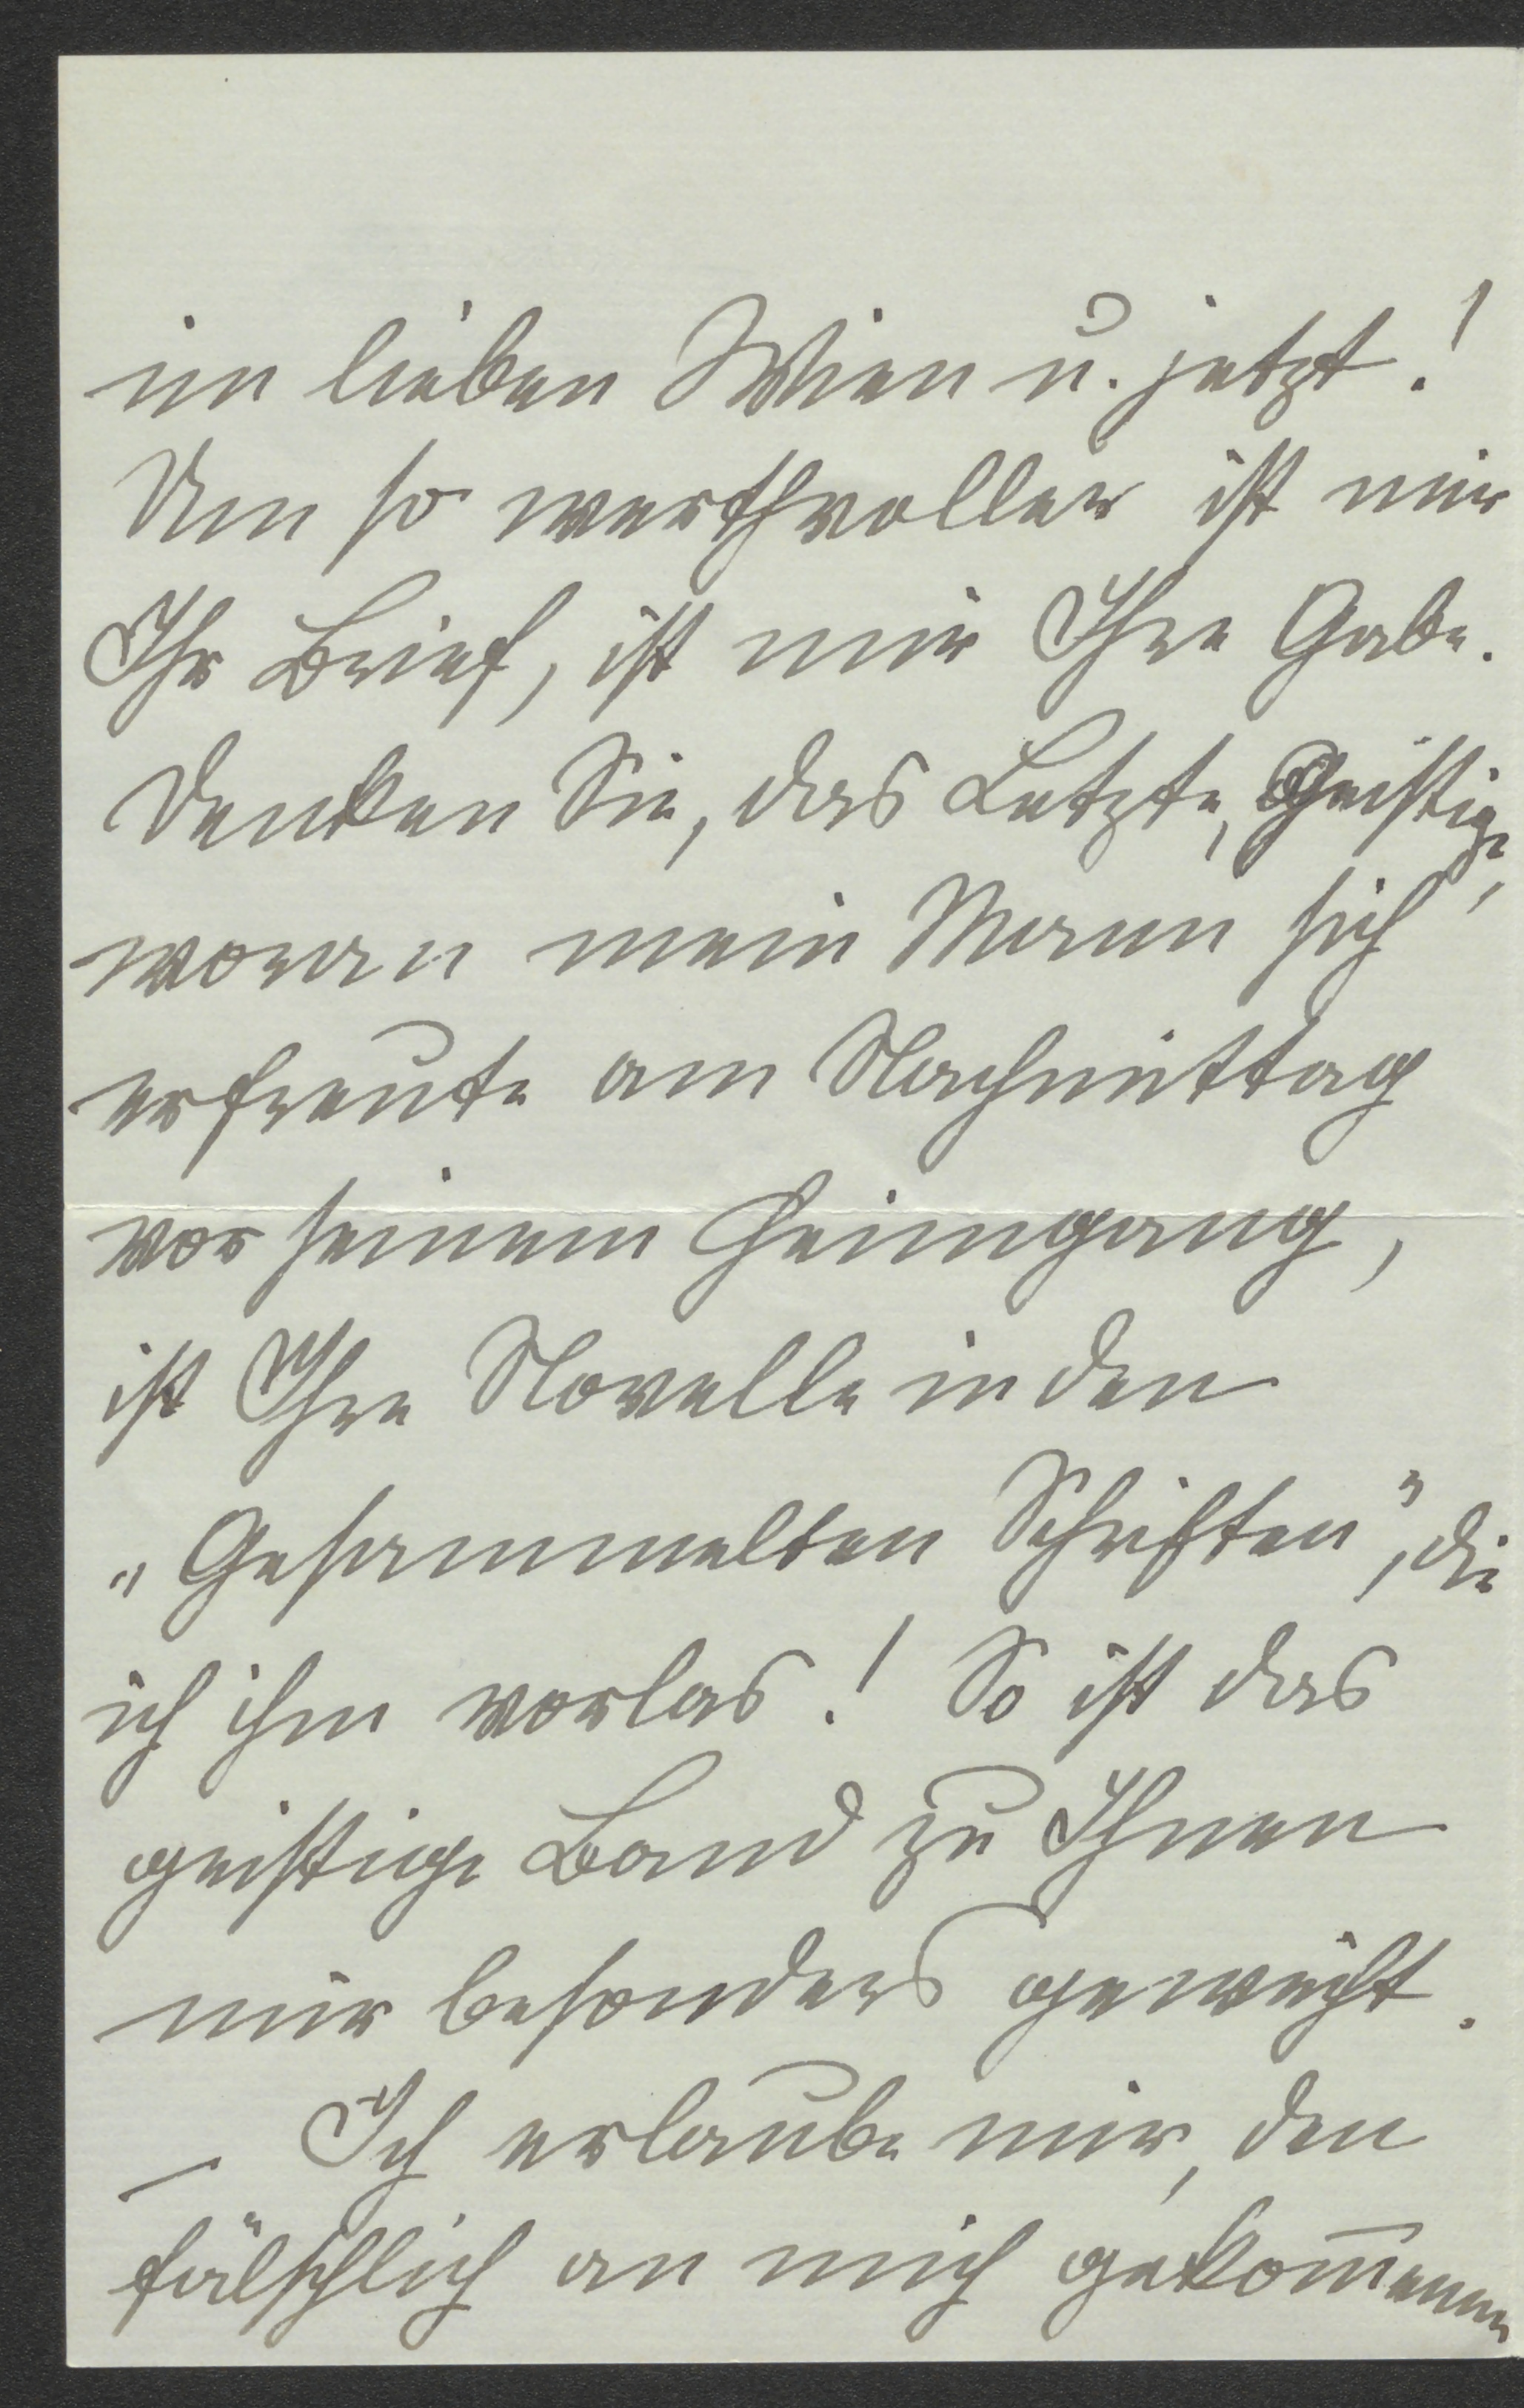 im lieben Wien u. jetzt!
Um so werthvoller ist mir
Ihr Brief, ist mir Ihre Gabe.
Denken Sie, das Letzte, Geistige,
woran mein Mann sich
erfreute am Nachmittag
vor seinem Heimgang,
ist Ihre Novelle in den
„Gesammelten Schriften”, die
ich ihm vorlas! So ist das
geistige Band zu Ihnen
mir besonders geweiht.
– Ich erlaube mir, den
fälschlich an mich gekom̅enen